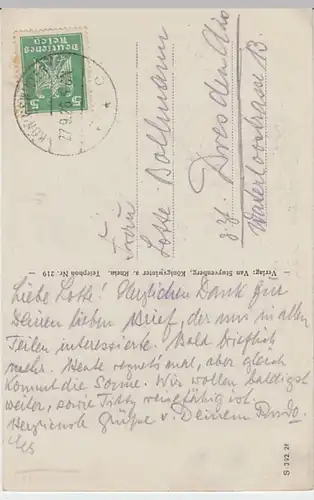 Deutsches
Reich
5 5
KÖNIGSW
27.9.26
Frau
Lotte Bollmann
z. Zt. Dresden A
Waterloostrasse 13.
Verlag: Van Stuyvenberg, Königswinter a. Rhein. Telephon Nr. 219
Liebe Lotte! Herzlichen Dank für
Deinen lieben Brief, der uns in allen
Teilen interessierte. Bald brieflich
mehr. Heute regnet's mal, aber gleich
kommt die Sonne. Wir wollen baldigst
weiter, sowie Titty reisefähig ist.
Herzlichste Grüße v. Deinem
S 392. 26